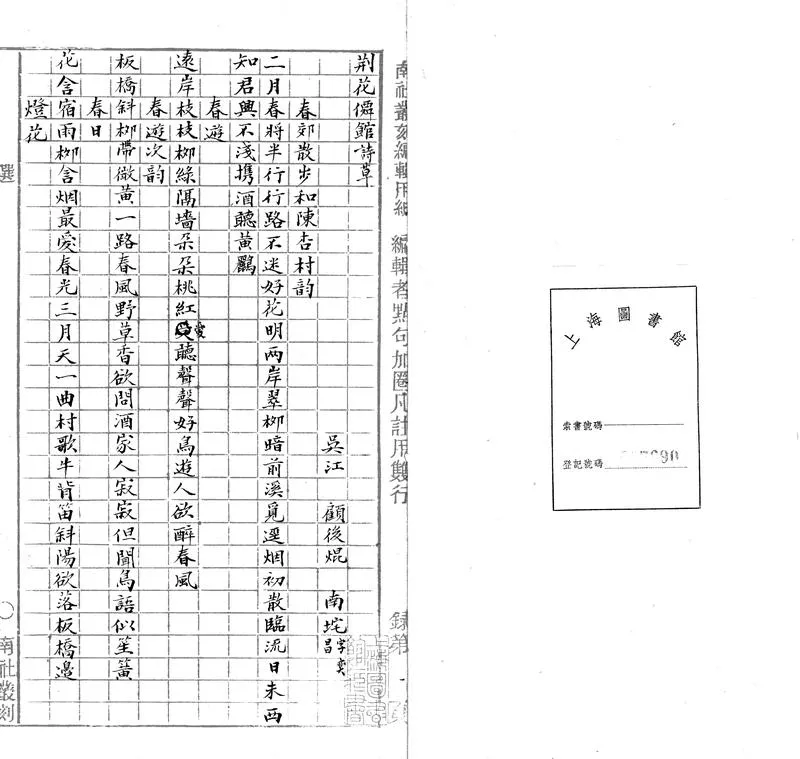 南社叢刻編輯用紙 編輯者點句加圈凡計用雙行 錄第
荆花僲館詩草
吳江 顧後焜 南垞 字奕昌
春郊散步和陳杏村韵
二月春將半行行路不迷好花明兩岸翠柳暗前溪覓逕烟初散臨流日未西
知君興不淺携酒聽黃鸝
春遊
遠岸枝枝柳綠隔墻朵朵桃紅愛聽聲聲好鳥遊人欲醉春風
春遊次韵
板橋斜柳帶微黃一路春風野草香欲問酒家人寂寂但聞鳥語似笙簧
春日
花含宿雨柳含烟最愛春光三月天一曲村歌牛背笛斜陽欲落板橋邊
燈花
選 〇 南社叢刻
上海圖書館
索書號碼
登記號碼 7690